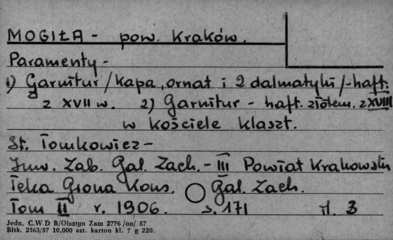 MOGIŁA - pow. Kraków.
Paramenty -
1) Garnitur /kapa, ornat i 2 dalmatyki/ - haft.
z XVII w. 2) Garnitur - haft. złotem. z XVIII
w kościele klaszt.
St. Tomkowicz -
Inw. Zab. Gal. Zach. - III Powiat Krakowski
Teka Grona Kons. Gal. Zach.
Tom II r. 1906. s. 171 il. 3
Jedn. C.W.D B/Olsztyn Zam 2776/on/57
Błtk. 2563/57 10.000 szt. karton kl. 7 g 220.